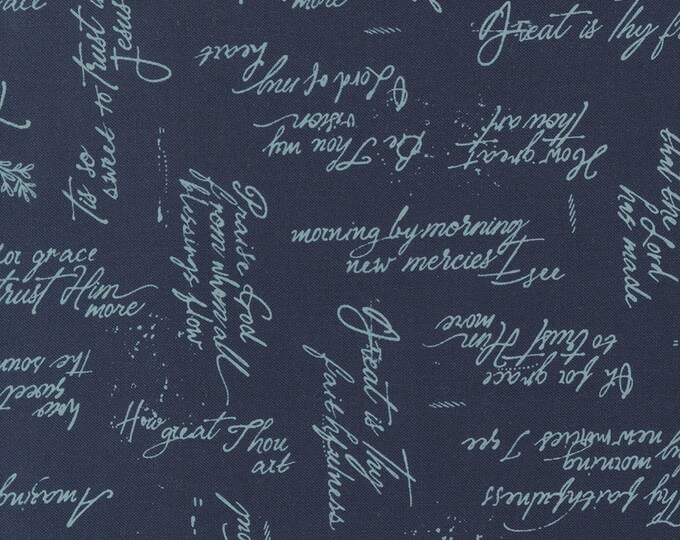 more
Great is Thy f
tis so
sweet to trust
Jesus
O Lord of my
heart
Be Thou my
vision
How great
Thou art
that the Lord
has made
Praise God
from whom all
blessings flow
morning by morning
new mercies I see
for grace
trust Him
more
how
sweet
the soun
Great is thy
faithfulness
Oh for grace
to trust Him
more
How
great Thou
art
Amazing
Thy faithfulness
morning
new mercies I see